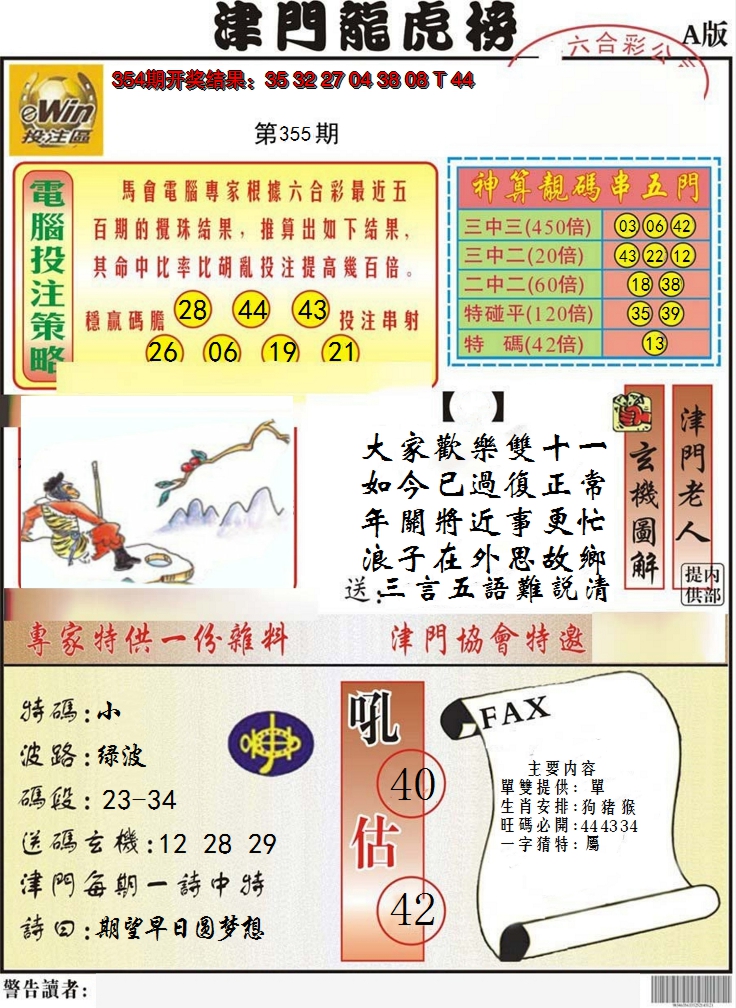 津門龍虎榜
A版
六合彩公
354期开奖结果：35 32 27 04 38 08 T 44
eWin
投注區
第355期
電腦投注策略
馬會電腦專家根據六合彩最近五
百期的攪珠结果，推算出如下结果，
其命中比率比胡亂投注提高幾百倍。
穩贏碼膽 28 44 43 投注串射
26 06 19 21
神算靚碼串五門
三中三(450倍) 03 06 42
三中二(20倍) 43 22 12
二中二(60倍) 18 38
特碰平(120倍) 35 39
特 碼(42倍) 13
【 】
大家歡樂雙十一
如今已過復正常
年關將近事更忙
浪子在外思故鄉
送：三言五語難説清
玄機圖解
津門老人
内部提供
專家特供一份雜料
津門協會特邀
特碼:小
波路:绿波
碼段:23-34
送碼玄機:12 28 29
津門每期一詩中特
詩曰:期望早日圆梦想
吼
40
估
42
FAX
主要内容
單雙提供: 單
生肖安排:狗猪猴
旺碼必開:444334
一字猜特:屬
警告讀者: